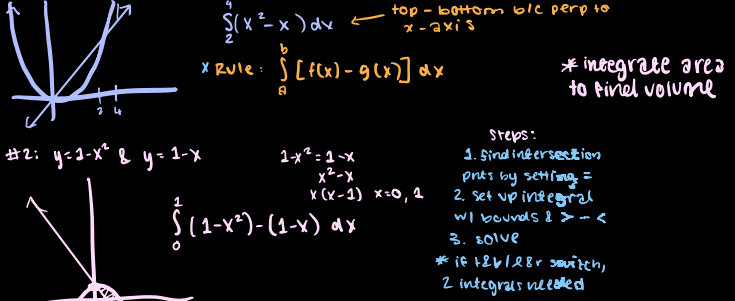 4
∫(x²-x) dx
2
top-bottom b/c perp to
x-axis
x Rule: ∫[f(x)-g(x)] dx
b
a
* integrate area
to find volume
2 4
#2: y=1-x² & y=1-x
1-x²=1-x
x²-x
x(x-1) x=0,1
1
∫(1-x²)-(1-x) dx
0
Steps:
1. find intersection
pnts by setting =
2. set up integral
w/ bounds & > - <
3. solve
* if t&b/l&r switch,
2 integrals needed